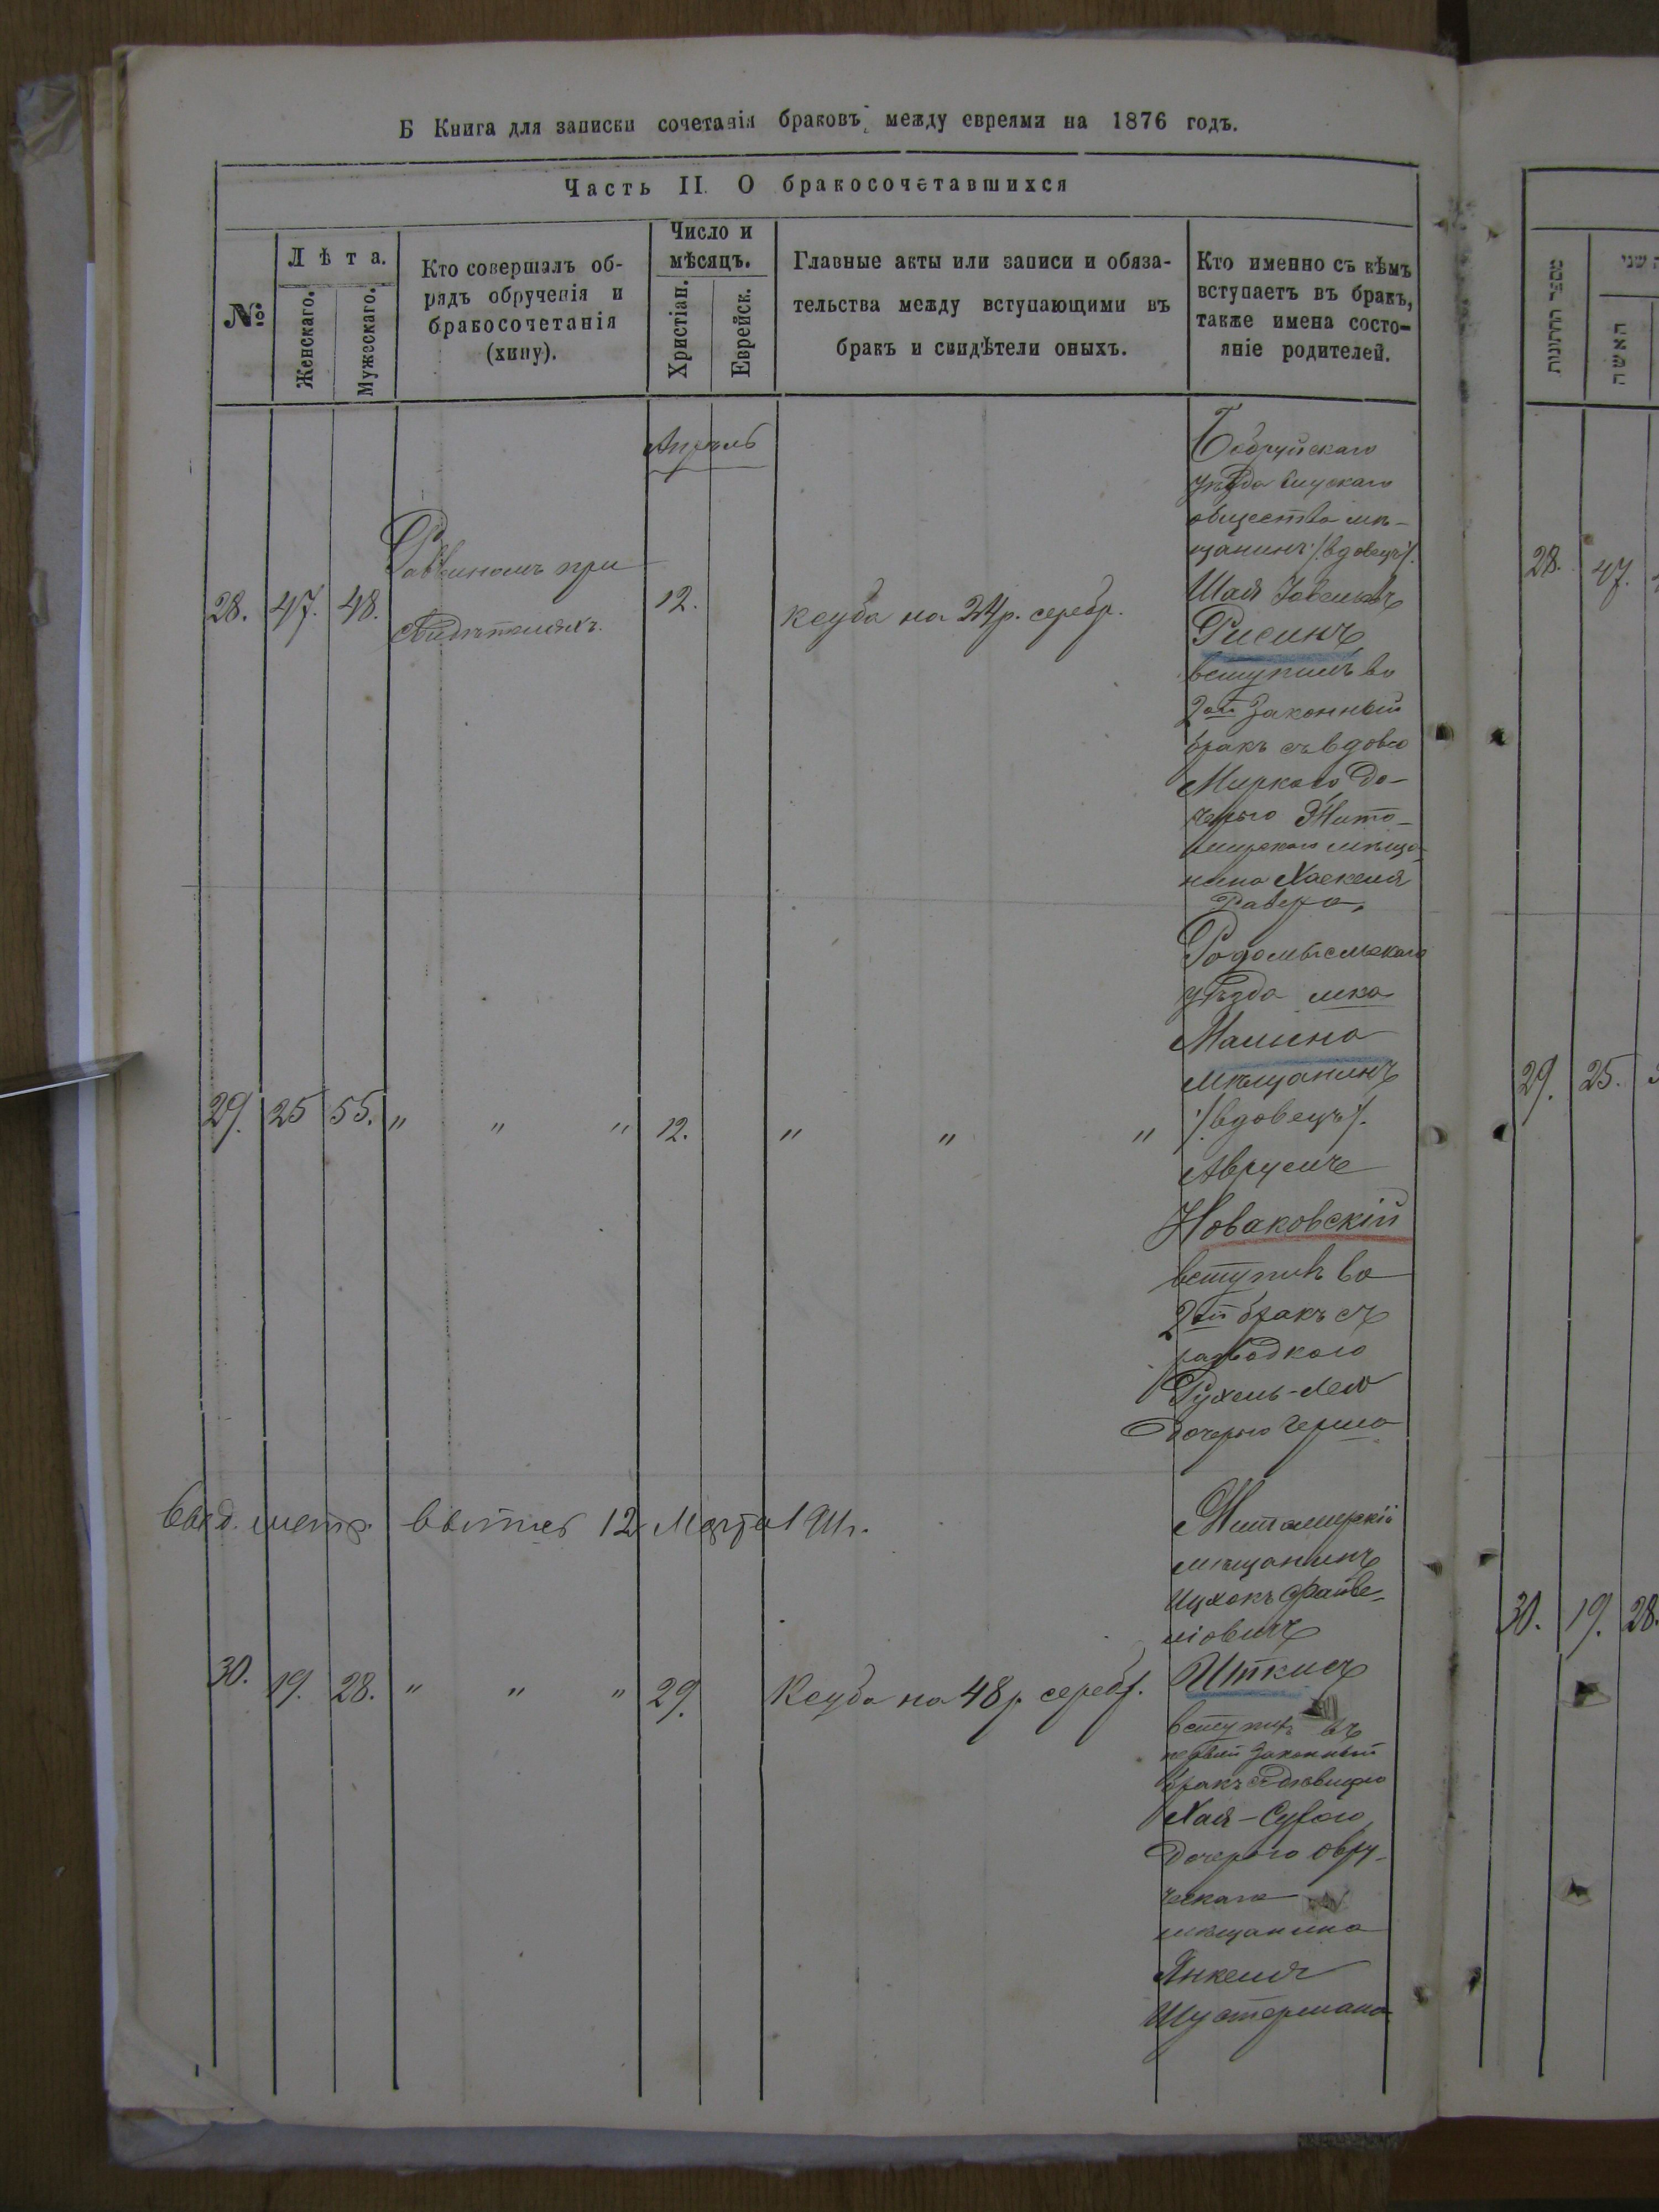 Б Книга для записки сочетанія браковъ между евреями на 1876 годъ.
Часть II. О бракосочетавшихся
№
Лѣта.
Женскаго.
Мужескаго.
Кто совершалъ об-
рядъ обрученія и
бракосочетанія
(хипу).
Число и
мѣсяцъ.
Христіан.
Еврейск.
Главные акты или записи и обяза-
тельства между вступающими въ
бракъ и свидѣтели оныхъ.
Кто именно съ кѣмъ
вступаетъ въ бракъ,
также имена состо-
яніе родителей.
Апрѣль
28. 47. 48.
Раввиномъ при
свидѣтеляхъ.
12.
Ксуба на 24 р. серебр.
Бобруйскаго
уѣзда
общества мѣ-
щанинъ /вдовецъ/.
Шая
Рисинъ
вступилъ во
2ой законный
бракъ съ вдовою
Миркою до-
черью Жито-
мирскаго мѣща-
нина Хаскеля
Равера.
29. 25 55. " " " 12. " " "
Родомысльскаго
уѣзда мка
Малина
мѣщанинъ
/вдовецъ/.
Аврумъ
Новаковскій
вступилъ во
2ой бракъ съ
разводкою
Рухель-Лею
дочерью Герша
Выд. метр. выпись 12 Марта 1911 г.
30. 19. 28. " " " 29.
Ксуба на 48 р. серебр.
Житомирскій
мѣщанинъ
Ицхокъ Файве-
ліовичъ
Иткисъ
вступилъ въ
первый законный
бракъ съ дѣвицею
Хая-Сурою
дочерью Овру-
ческаго
мѣщанина
Янкеля
Шустермана
מספר החתונות
האשה
28. 47.
29. 25.
30. 19. 28.